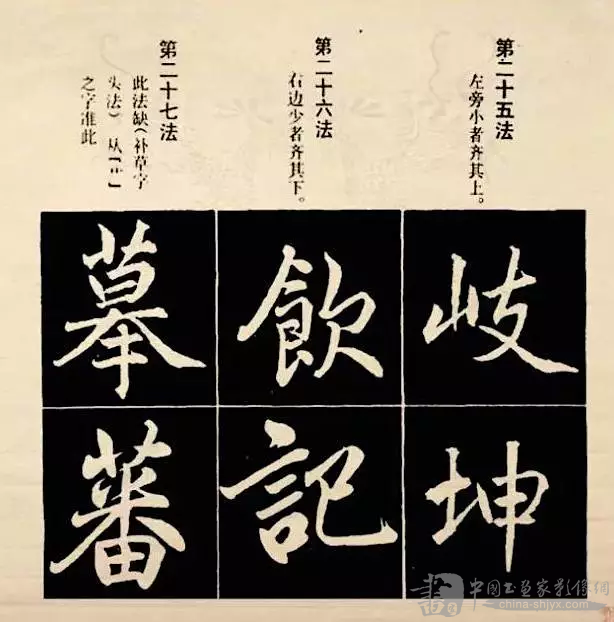 第二十五法
左旁小者齐其上。
岐
坤
第二十六法
右边少者齐其下。
飲
記
第二十七法
此法缺(补草字
头法)从【艹】
之字准此
摹
蕃
書
中國书画家影像網
china-shjyx.com